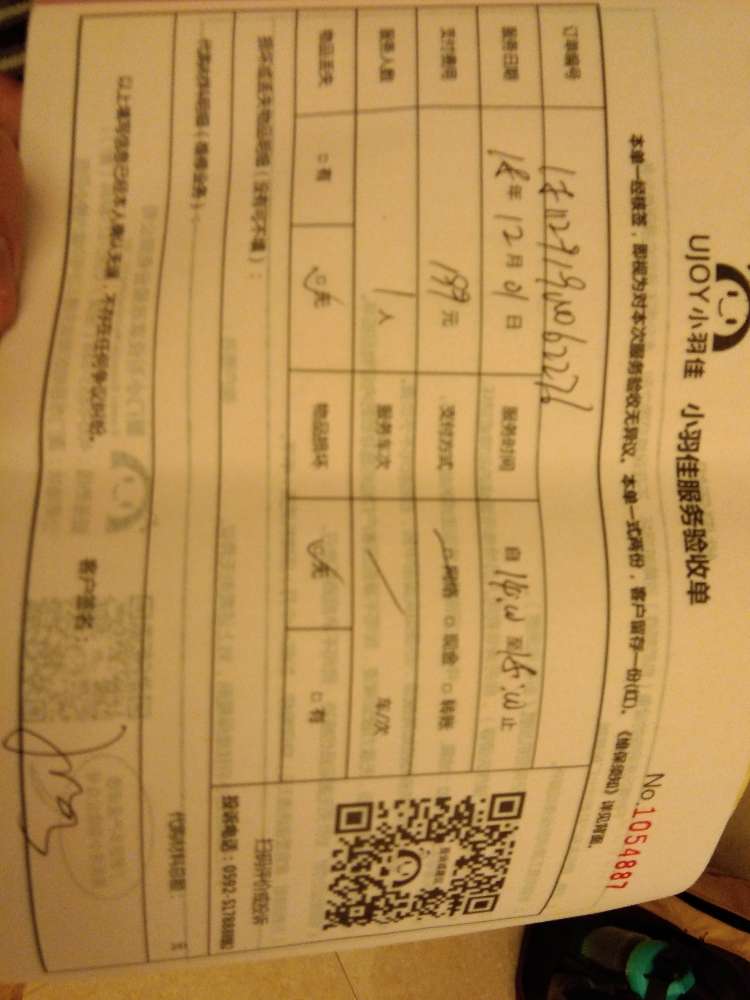 UJOY小羽佳 小羽佳服务验收单
No.1054887
本单一经核签,即视为对本次服务验收无异议。本单一式两份,客户留存一份(红)。《维保须知》详见背面。
订单编号
服务日期 18年12月01日 服务时间 自14:00至18:00止
支付费用 199元 支付方式 □网络 □现金 □转账
服务人数 1人 服务车次 车/次
物品丢失 □有 □无 物品损坏 □无 □有
损坏或丢失物品明细(没有可不填):
扫码评价或投诉
代购材料明细(维修业务):
代购材料总额: 元
以上填写信息已经本人确认无误,不存在任何争议纠纷。 客户签名: